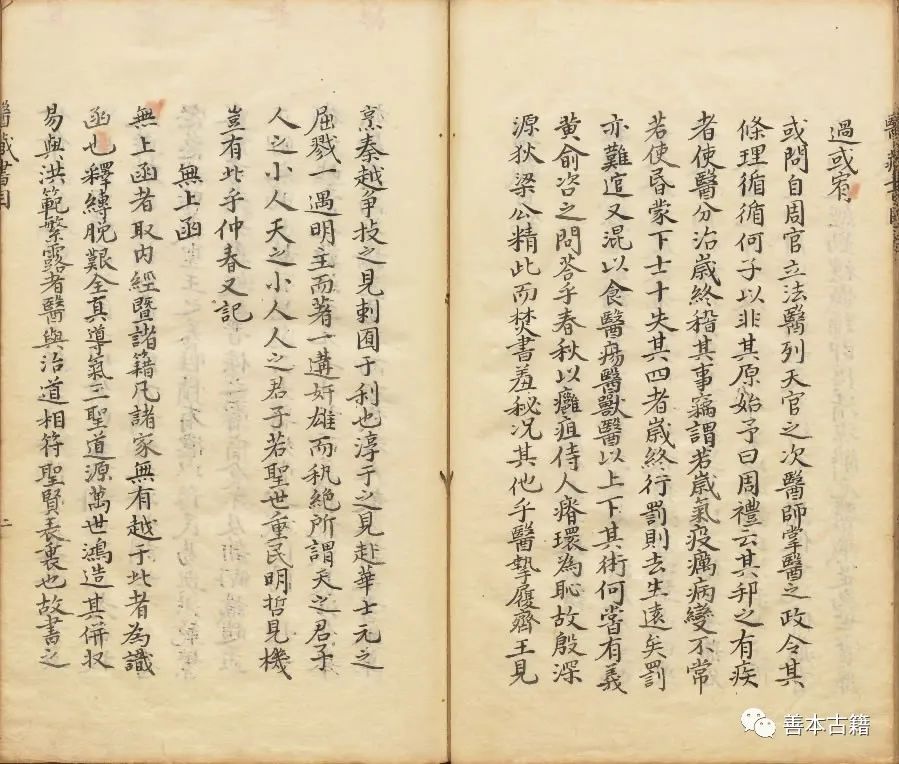 過或宥
或問自周官立法醫列天官之次醫師掌醫之政令其
條理循循何子以非其原始予曰周禮云其邦之有疾
者使醫分治歲終稽其事竊謂若歲氣疫癘病變不常
若使昏蒙下士十失其四者歲終行罰則去生遠矣罰
亦難逭又混以食醫瘍醫獸醫以上下其術何嘗有義
黄俞咨之問荅乎春秋以癰疽侍人瘠環為恥故殷深
源狄梁公精此而焚書羞秘况其他乎醫摯廖齊王見
烹秦越争技之見刺囿于利也淳于之見赴華士元之
屈戮一遇明主而著一遘奸雄而執絶所謂天之君子
人之小人天之小人人之君子若聖世重民明哲見機
豈有此乎仲春又記
無上函
無上函者取内經暨諸籍凡諸家無有越于此者為識
函也釋縛脱艱全真導氣三聖道源萬世鴻造其併收
易與洪範繁露者醫與治道相符聖賢表裏也故書之
醫藏書目
二
善本古籍